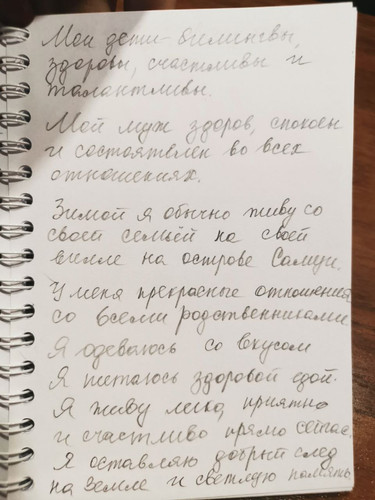 Мои дети - билингвы,
здоровы, счастливы и
талантливы.
Мой муж здоров, спокоен
и состоятелен во всех
отношениях.
Зимой я обычно живу со
своей семьёй на своей
вилле на острове Самуи.
У меня прекрасные отношения
со всеми родственниками
Я одеваюсь со вкусом
Я питаюсь здоровой едой.
Я живу легко, приятно
и счастливо прямо сейчас.
Я оставляю добрый след
на земле и светлую память